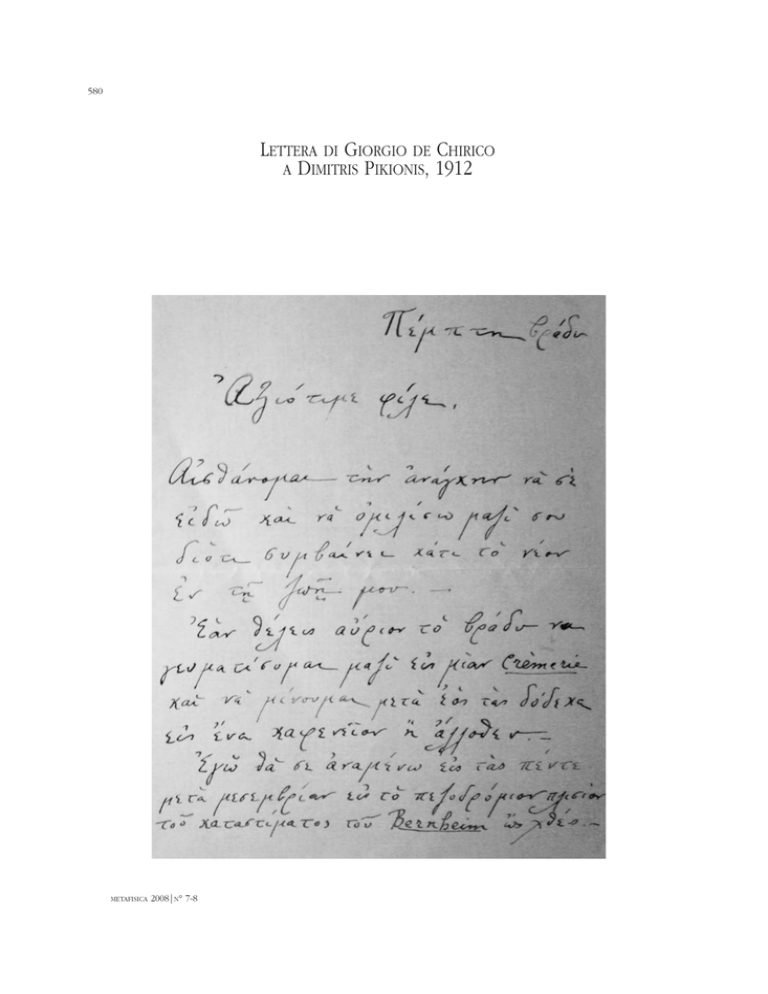 580
LETTERA DI GIORGIO DE CHIRICO
A DIMITRIS PIKIONIS, 1912
Πέμπτη βράδυ
Ἀξιότιμε φίλε.
Αἰσθάνομαι τὴν ἀνάγκην νὰ σὲ
εἰδῶ καὶ νὰ ὁμιλίσω μαζὶ σου
διὸτι συμβαίνει κάτι τὸ νέον
ἐν τῇ ζωῇ μου. —
Ἐὰν θέλεις αὔριον τὸ βράδυ να
γευματίσομαι μαζὶ εἰς μὶαν Crèmerie
καὶ νὰ μένουμαι μετὰ ἑὸς τὰς δόδεκα
εἰς ἕνα καφενεῖον ἢ ἄλλοθεν. —
Ἐγῶ θὰ σε ἀναμένω εἰς τὰς πέντε
μετὰ μεσεμβρίαν εἰς τὸ πεζοδρόμιον πλισίον
τοῦ καταστίματος τοῦ Bernheim ὣς χθές. —
METAFISICA 2008|N° 7-8